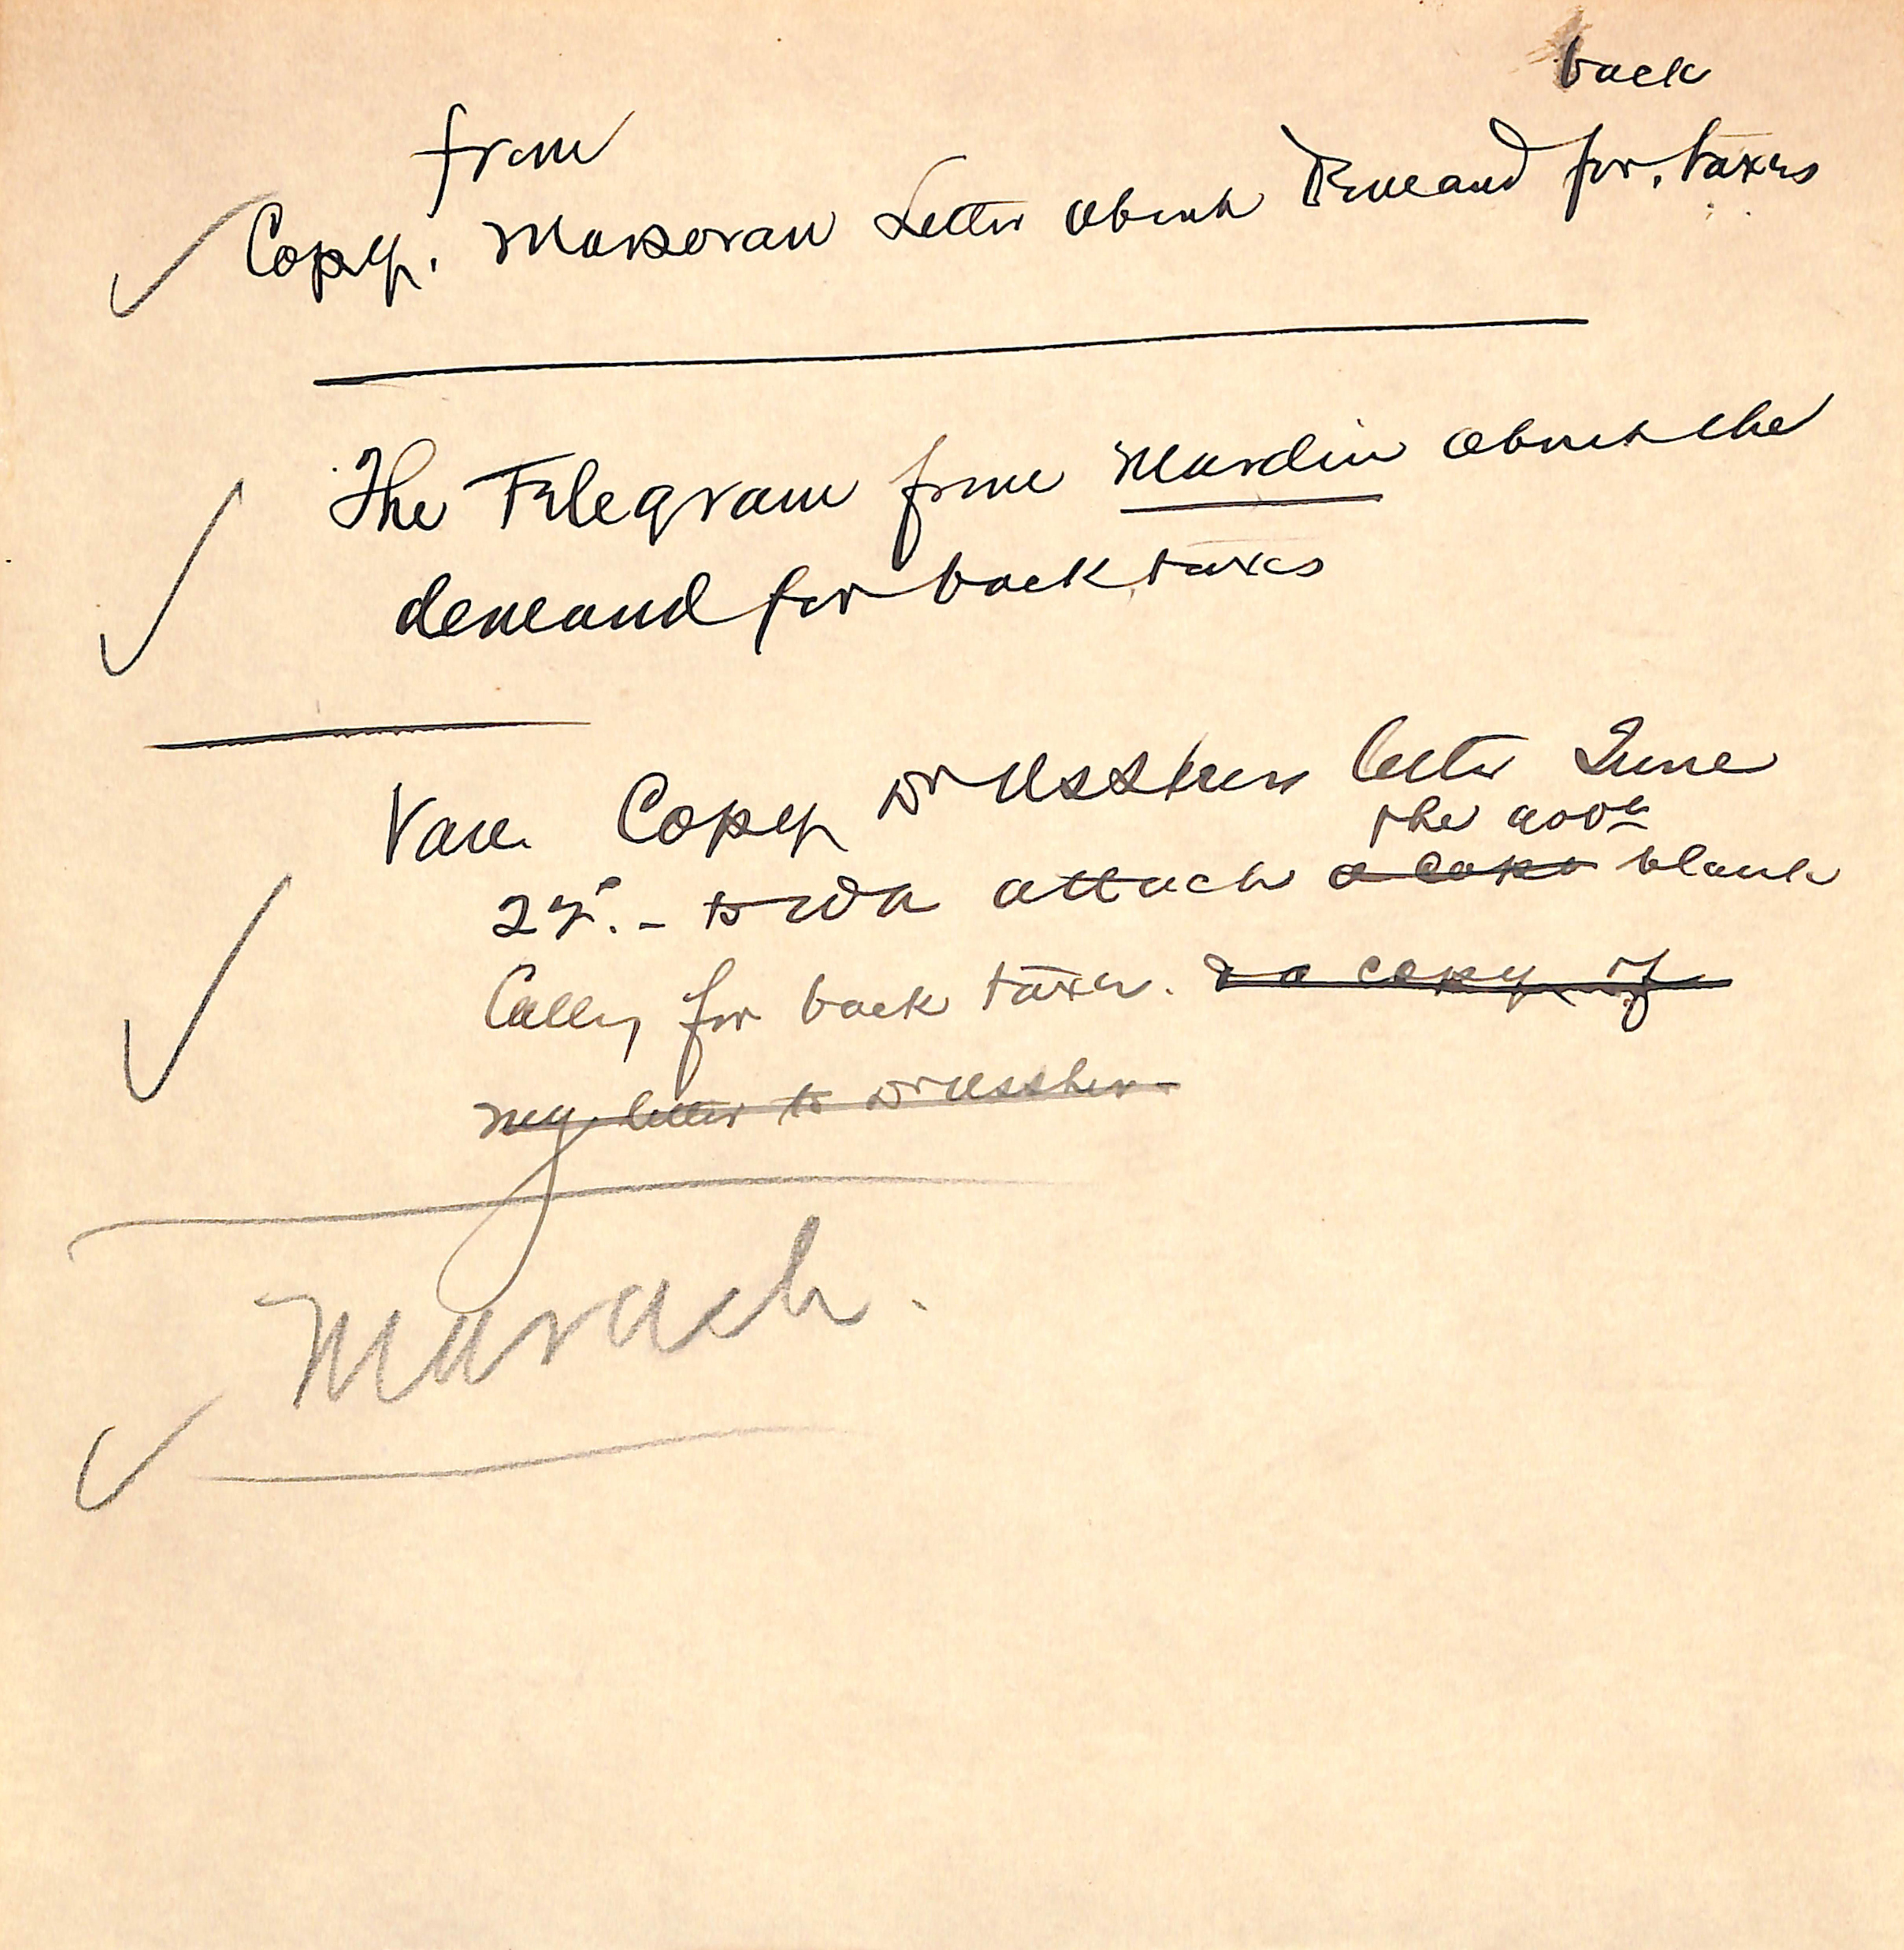 back
from
Copy. Marsovan Letter about Demand for taxes
The Telegram from Mardin about the
demand for back taxes
Van. Copy Dr Usshers letter June
the
27. - to attach a copy blank
Calling for back taxes. & a copy of
my letter to Dr Ussher
Marash.